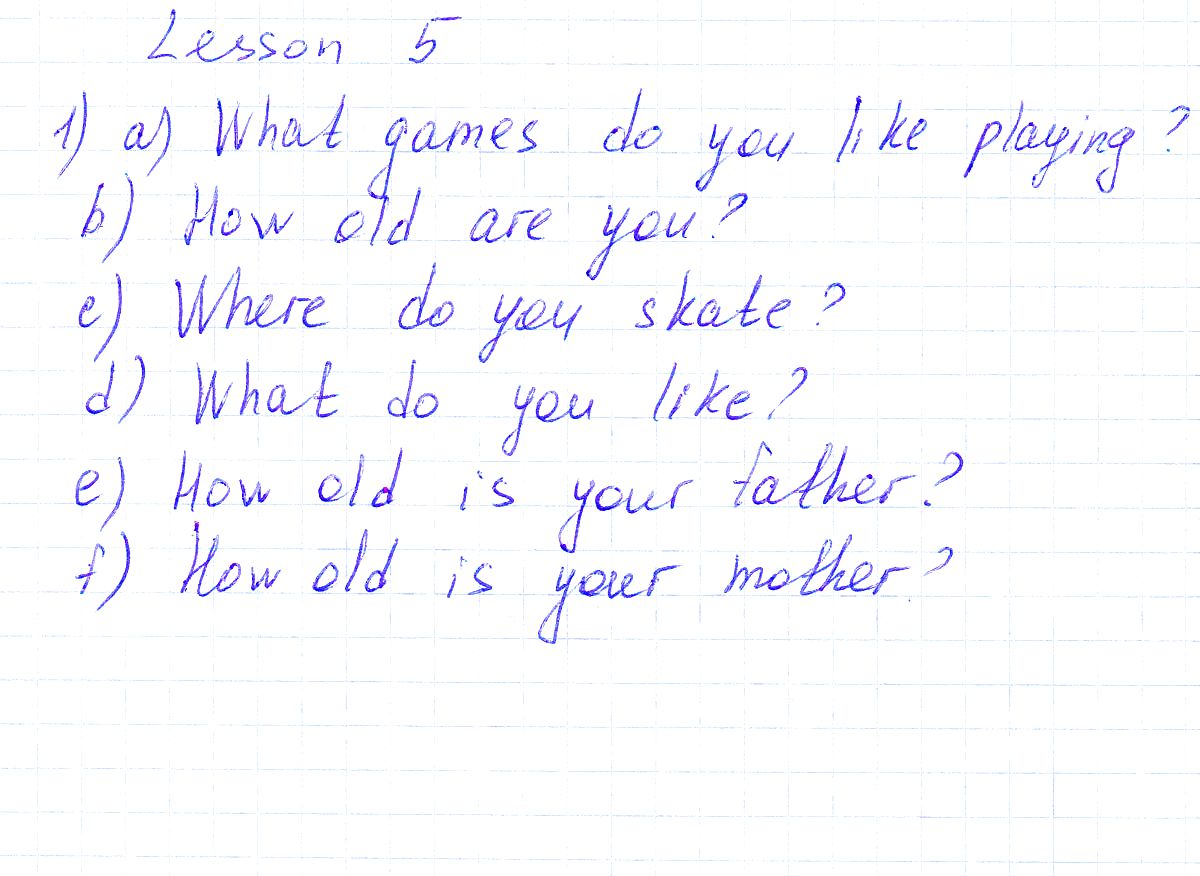 Lesson 5
1) a) What games do you like playing?
b) How old are you?
c) Where do you skate?
d) What do you like?
e) How old is your father?
f) How old is your mother?